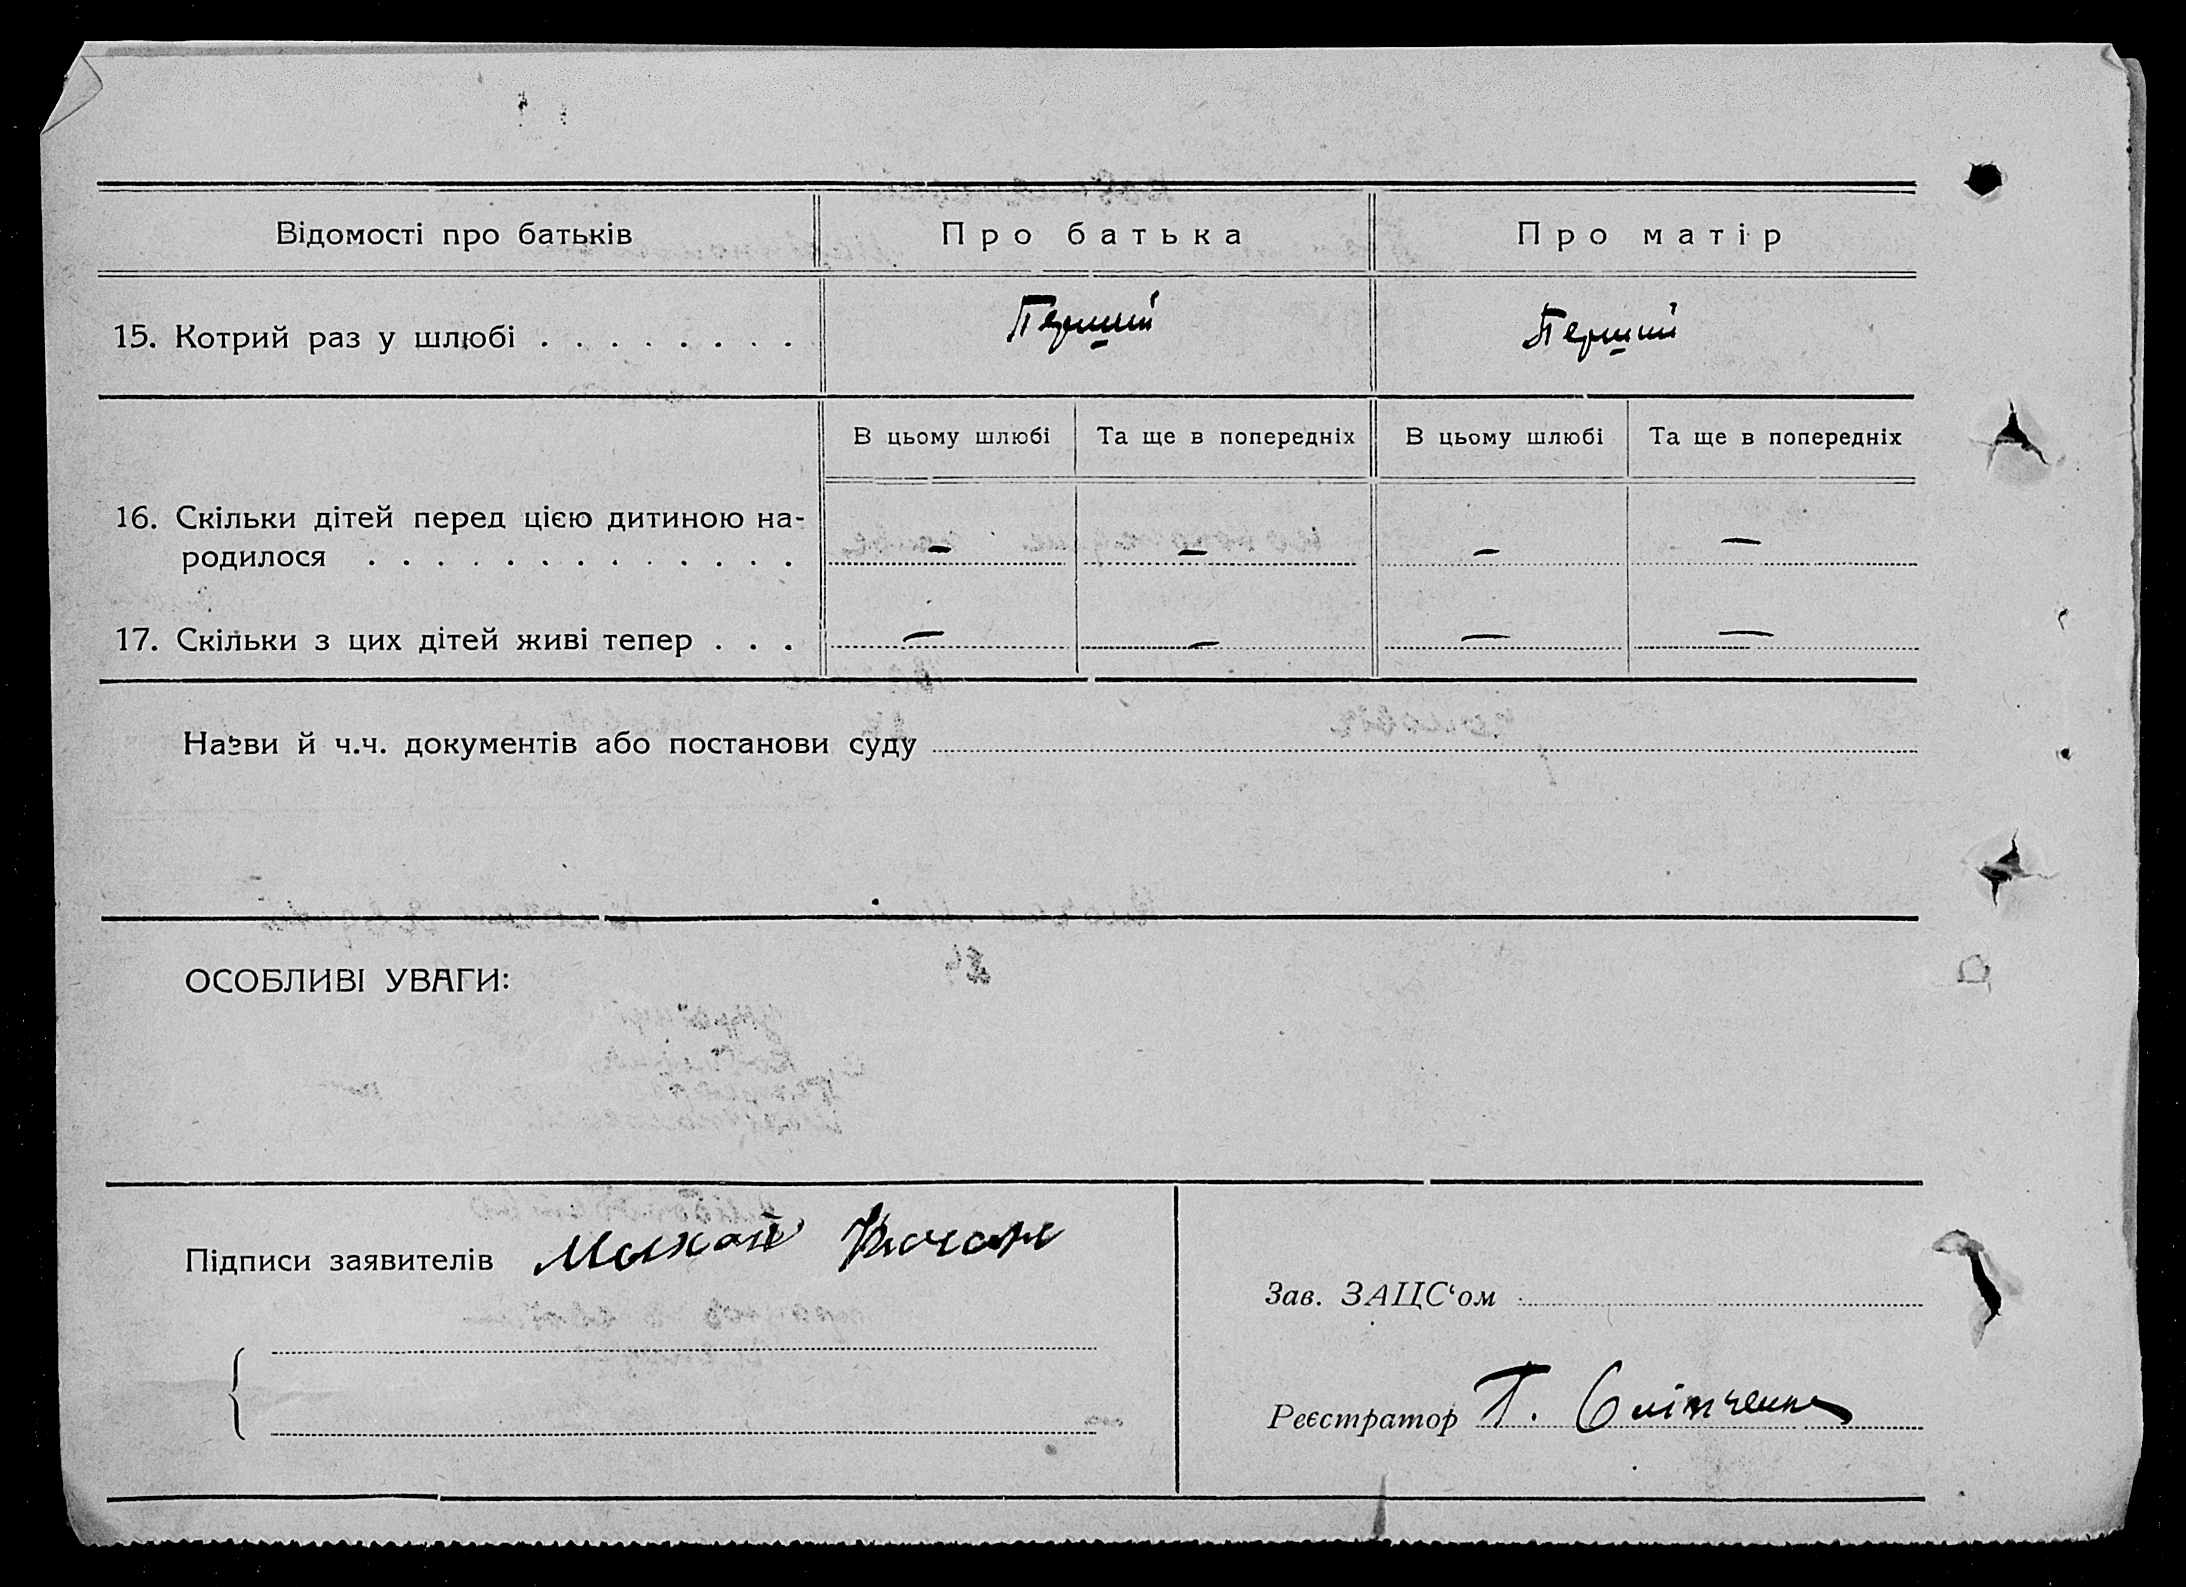 Відомості про батьків Про батька Про матір
15. Котрий раз у шлюбі . . . . . . . . Перший Перший
В цьому шлюбі Та ще в попередніх В цьому шлюбі Та ще в попередніх
16. Скільки дітей перед цією дитиною на-
родилося . . . . . . . . . . . . . . — — — —
17. Скільки з цих дітей живі тепер . . . — — — —
Назви й ч.ч. документів або постанови суду
ОСОБЛИВІ УВАГИ:
Підписи заявителів
Зав. ЗАЦС‘ом
Реєстратор Т.